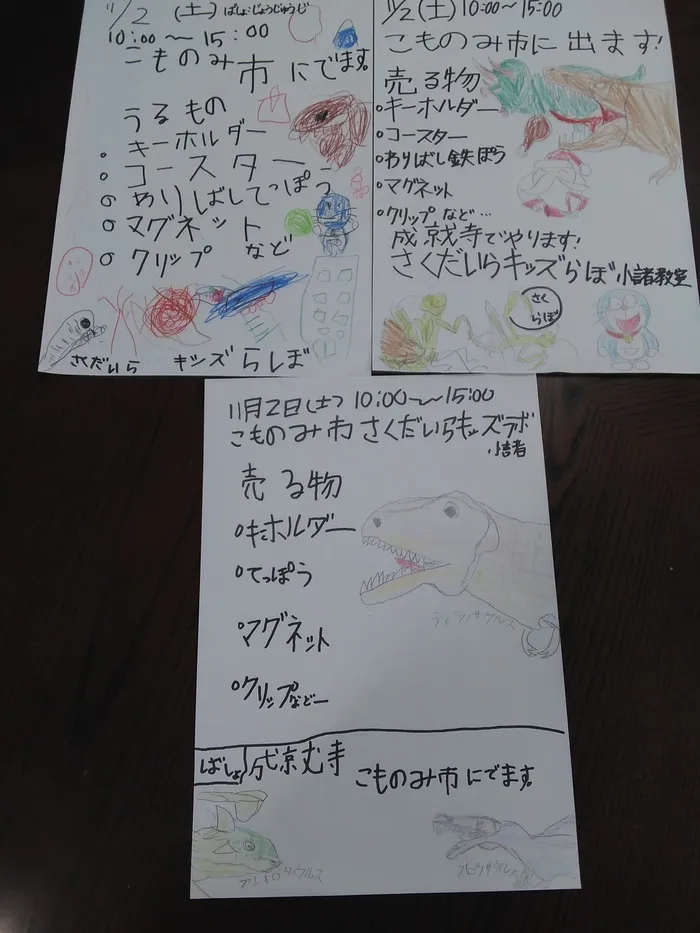 11/2 (土) ばしょ:じょうじゅじ
10:00〜15:00
こものみ市にでます。
うるもの
○キーホルダー
○コースター
○わりばしてっぽう
○マグネット
○クリップ など
さくだいら キッズらぼ
11/2(土)10:00〜15:00
こものみ市に出ます!
売る物
○キーホルダー
○コースター
○わりばし鉄ぽう
○マグネット
○クリップなど…
成就寺でやります!
さくだいらキッズらぼ小諸教室
さく
らぼ
11月2日(土)10:00〜15:00
こものみ市 さくだいらキッズラボ
小諸
売る物
○キーホルダー
○てっぽう
○マグネット
○クリップなどー
ティラノサウルス
ばしょ 成就寺
こものみ市にでます。
スピノサウルス